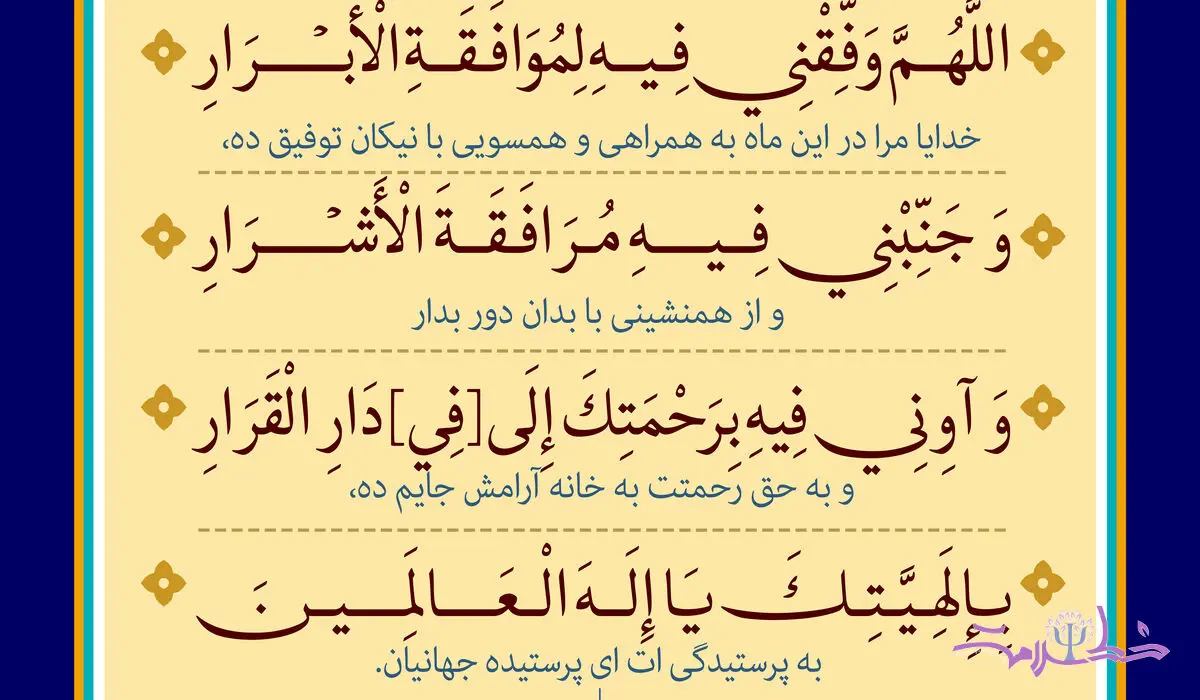 اللَّهُمَّ وَفِّقْنِي فِيهِ لِمُوَافَقَةِ الْأَبْرَارِ
خدایا مرا در این ماه به همراهی و همسویی با نیکان توفیق ده،
وَ جَنِّبْنِي فِيهِ مُرَافَقَةَ الْأَشْرَارِ
و از همنشینی با بدان دور بدار
وَ آوِنِي فِيهِ بِرَحْمَتِكَ إِلَى [فِي] دَارِ الْقَرَارِ
و به حق رحمتت به خانه آرامش جایم ده،
بِإِلَهِيَّتِكَ يَا إِلَهَ الْعَالَمِينَ
به پرستیدگی ات ای پرستیده جهانیان.
خط سلامت